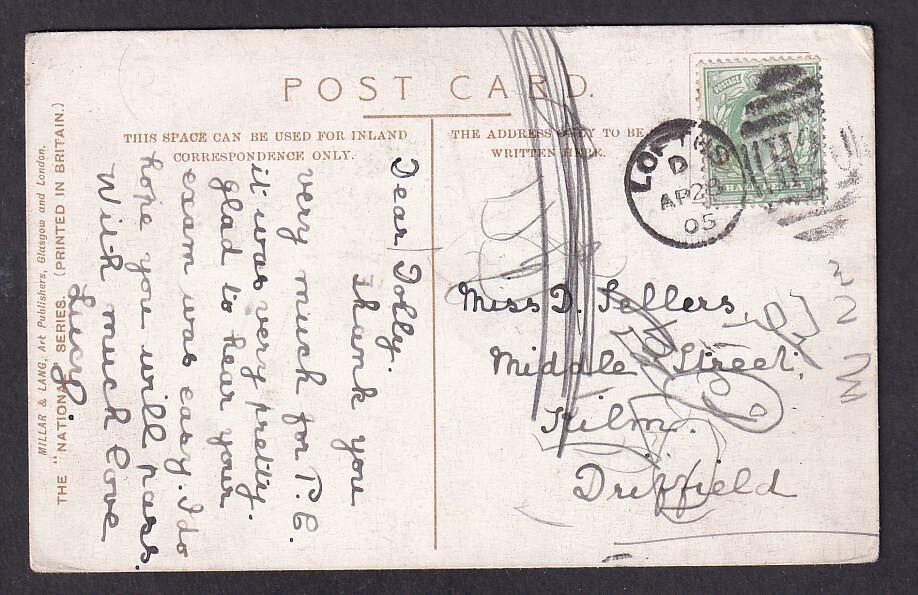 POST CARD.
THIS SPACE CAN BE USED FOR INLAND
CORRESPONDENCE ONLY.
THE ADDRESS ONLY TO BE
WRITTEN HERE.
MILLAR & LANG, Art Publishers, Glasgow and London.
THE "NATIONAL" SERIES. (PRINTED IN BRITAIN.)
Dear Dolly.
Thank you
very much for P.C.
it was very pretty.
glad to hear your
exam was easy. I do
hope you will pass.
With much love
POSTAGE
HALFPENNY
LOFTUS
D
AP 28
05
Miss D. Sellers,
Middle Street,
Kilm.
Driffield